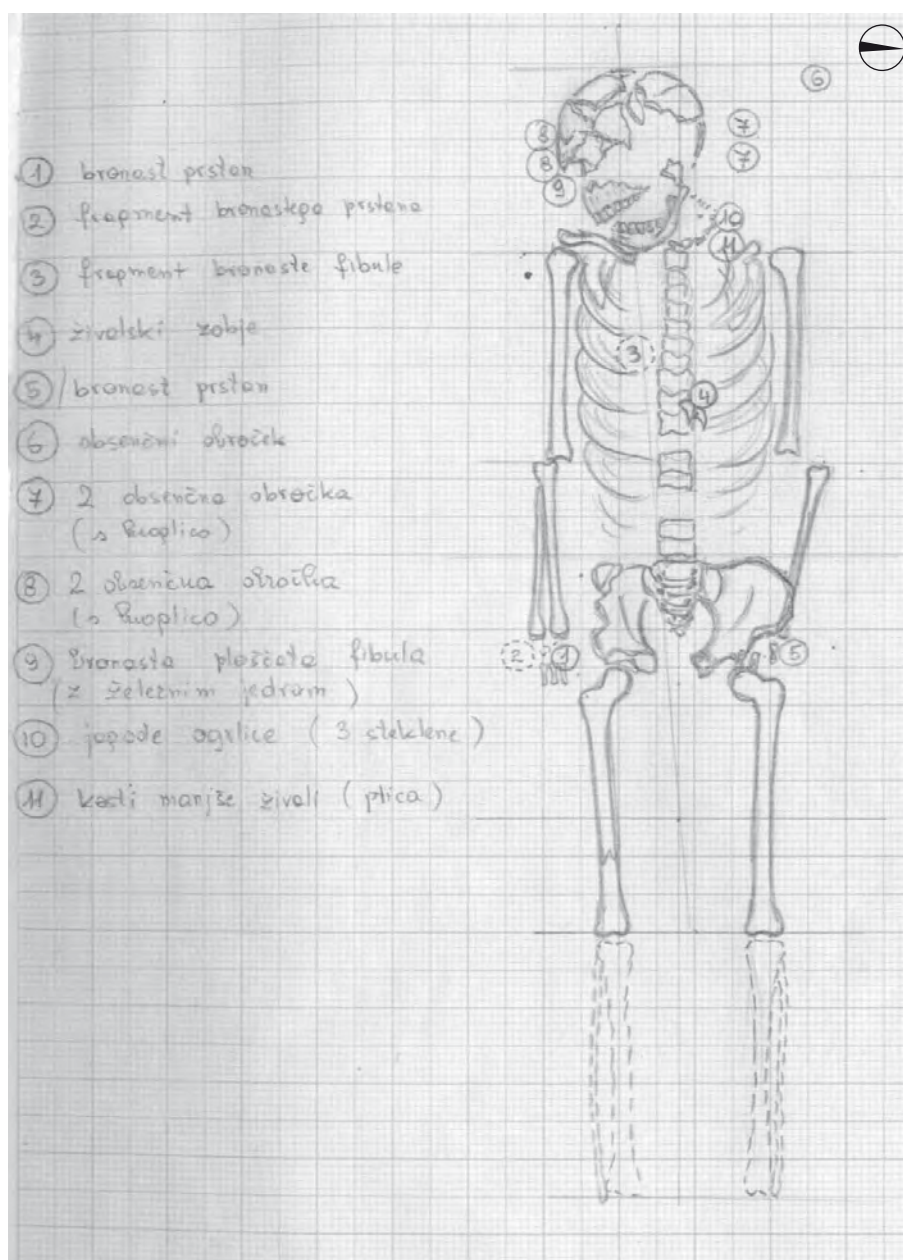 ① bronast prstan
② fragment bronastega prstana
③ fragment bronaste fibule
④ živalski zobje
⑤ bronast prstan
⑥ obsenčni obroček
⑦ 2 obsenčna obročka
(s kroplico)
⑧ 2 obsenčna obročka
(s kroplico)
⑨ bronasta ploščata fibula
(z železnim jedrom)
⑩ jagode ogrlice (3 steklene)
⑪ kosti manjše živali (ptica)
⑥
⑧ ⑦
⑧ ⑦
⑨
⑩
⑪
③
④
② ① ⑤